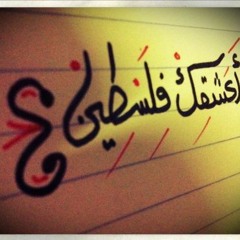 أعشقك فلسطين